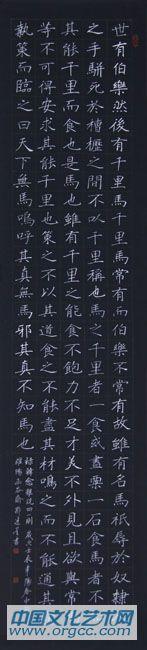 世有伯樂然後有千里馬千里馬常有而伯樂不常有故雖有名馬祇辱於奴隸
之手駢死於槽櫪之間不以千里稱也馬之千里者一食或盡粟一石食馬者不
其能千里而食也是馬也雖有千里之能食不飽力不足才美不外見且欲與常
等不可得安求其能千里也策之不以其道食之不能盡其材鳴之而不能通其
執策而臨之曰天下無馬嗚呼其真無馬邪其真不知馬也
韓愈雜說四則
中国文化艺术网
www.orgcc.com